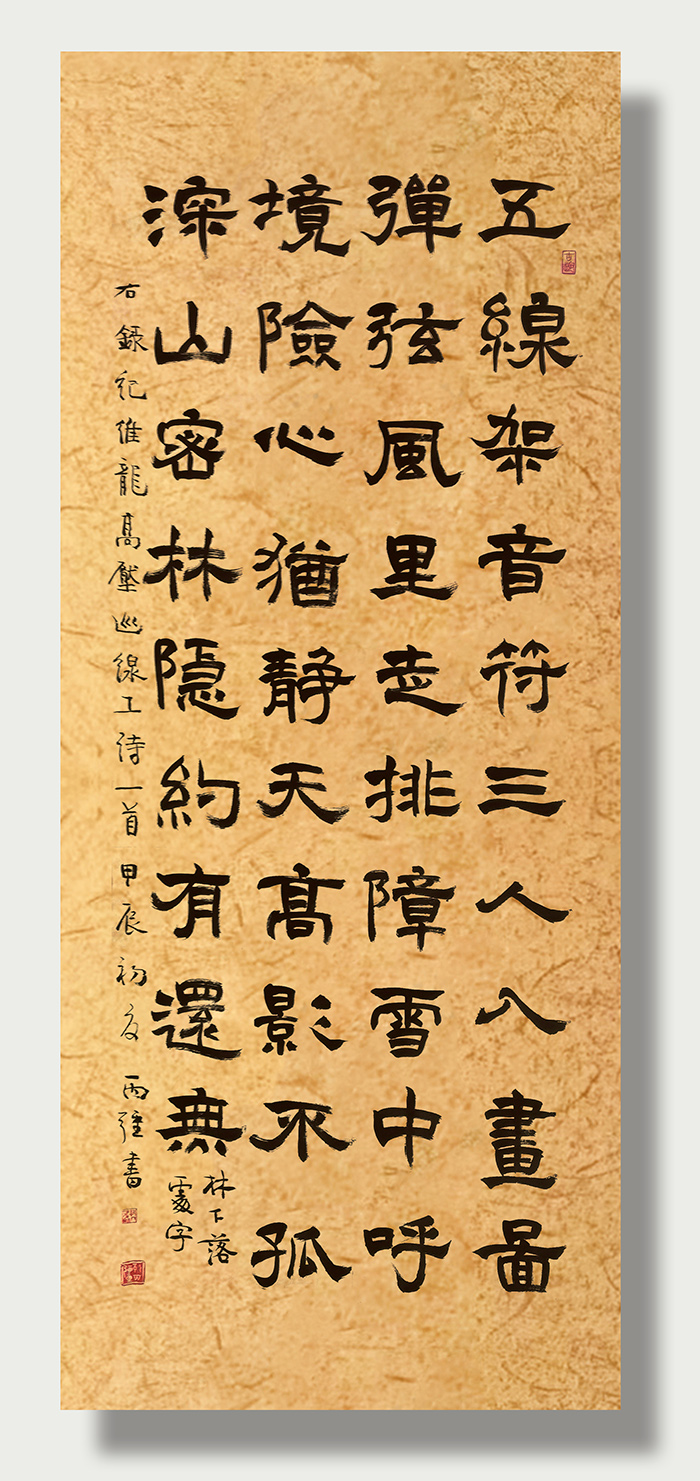 五線架音符三人入畫圖
彈弦風里走排障雪中呼
境險心猶靜天高影不孤
深山密林隱約有還無
林下落
處字
右錄紀維龍高壓巡線工詩一首甲辰初夏丙強書